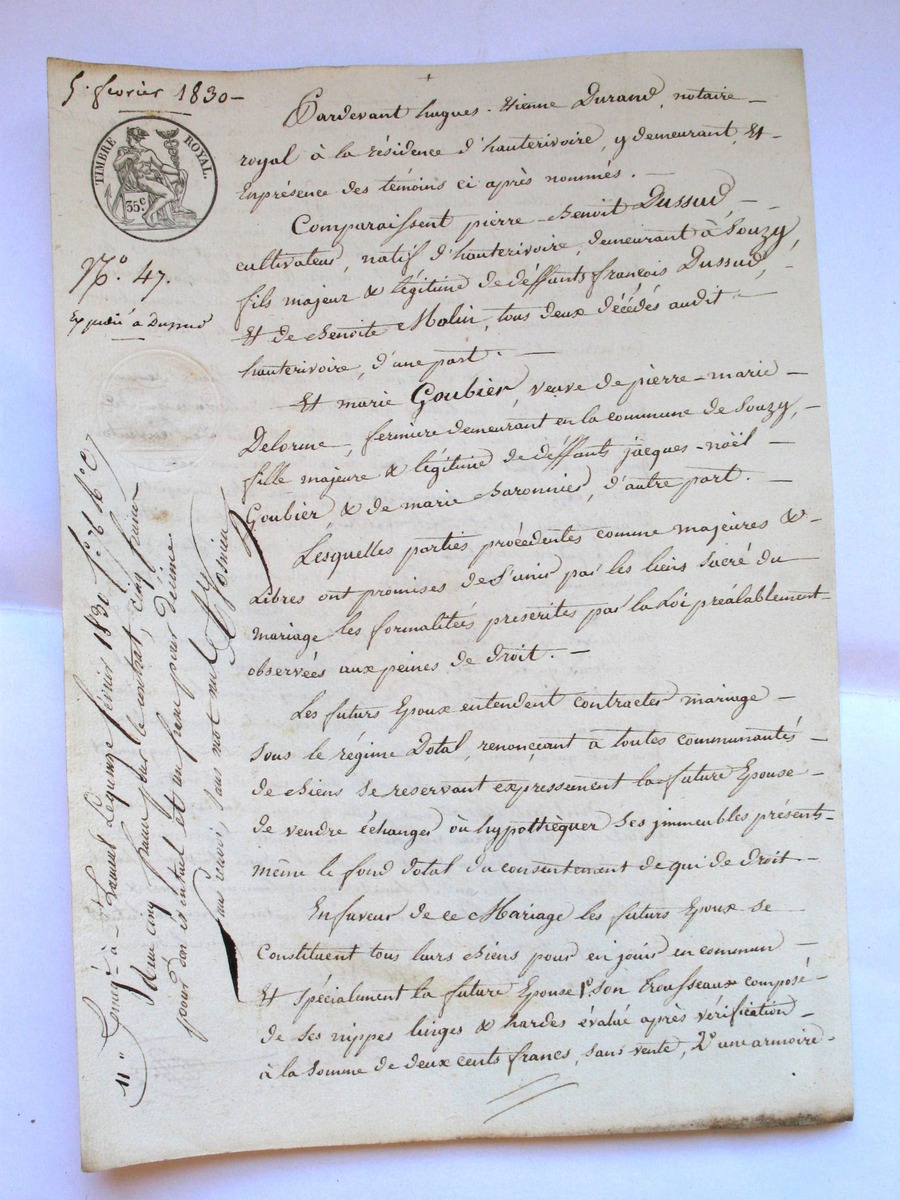 5. février 1830 –
TIMBRE ROYAL.
35.c
N.o 47.
Expédié à Dussud
Pardevant hugues-Etienne Durand, notaire –
royal à la résidence d'hauterivoire, y demeurant, Et –
En présence des témoins ci après nommés. –
Comparaissent pierre-Benoit Dussud –
cultivateur, natif d'hauterivoire, demeurant à Souzy,
fils majeur & légitime de deffunts françois Dussud, –
Et de Benoite Molin, tous deux décédés audit –
hauterivoire, d'une part. –
Et marie Goubier, veuve de pierre-marie –
Delorme, fermière demeurant en la commune de Souzy, –
fille majeure & légitime de déffunts jacques-noël –
Goubier & de marie Baronnier, d'autre part. –
Lesquelles parties procédentes comme majeures & –
Libres ont promises de s'unir par les liens sacré du
mariage les formalitées prescrites par la Loi préalablement –
observées aux peines de droit. –
Les futurs Epoux entendent contracter mariage –
sous le régime Dotal, renonçant à toutes communautés –
de Biens se reservant expressement la future Epouse –
de vendre échanger où hypothèquer ses immeubles présents –
même le fond dotal du consentement de qui de droit –
En faveur de ce Mariage les futurs Epoux se
Constituent tous leurs Biens pour en jouir en commun –
Et spécialement la future Epouse 1.o son trousseaux composé –
de ses nippes linges & hardes évalué après vérification –
à la somme de deux cents francs, sans vente, 2.o une armoire –
à St Laurent Le quinze février 1830 f.o
pour le contrat, cinq francs
pour don éventuel et un franc pour décime
sans renvoi, sans mot nul